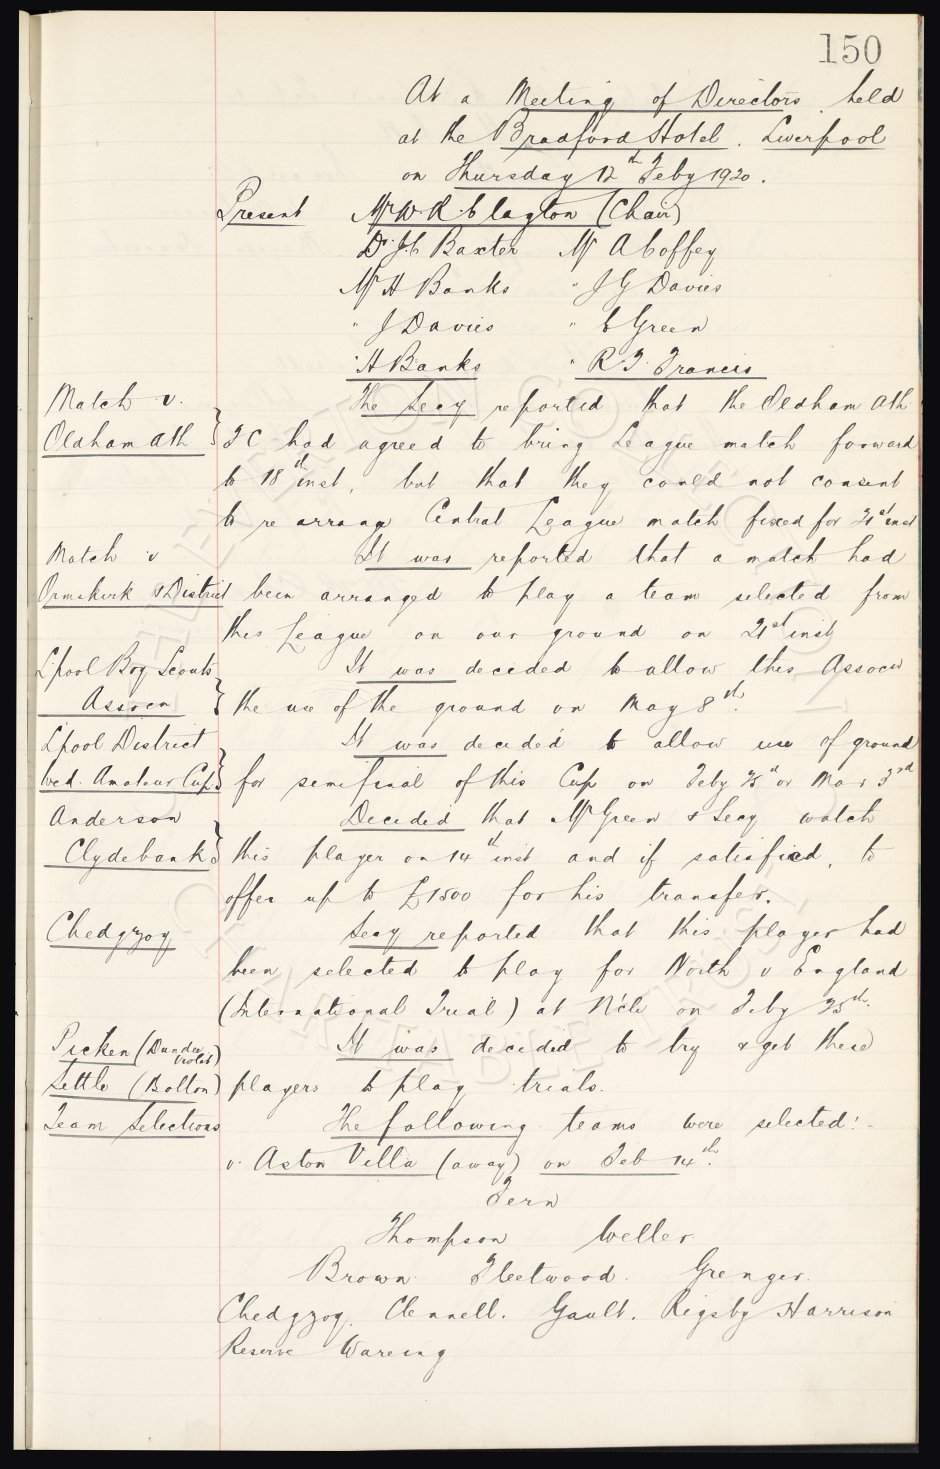 150
At a Meeting of Directors held
at the Bradford Hotel. Liverpool
on Thursday 12th Feby 1920.
Present Mr W. R. Clayton (Chair)
Dr J. C Baxter Mr A Coffey
Mr H Banks " J G Davies
" J Davies " C Green
" H Banks " R. T. Francis
Match v. The Secy reported that the Oldham Ath
Oldham Ath } F C had agreed to bring League match forward
to 18th inst, but that they could not consent
to re arrange Central League match fixed for 21st inst
Match v It was reported that a match had
Ormskirk & District been arranged to play a team selected from
this League on our ground on 21st inst
L'pool Boy Scouts It was decided to allow this Assocn
Assocn } the use of the ground on May 8th.
Lpool District It was decided to allow use of ground
Wed. Amateur Cup } for semifinal of this Cup on Feby 25th or Mar 3rd
Anderson Decided that Mr Green & Secy watch
Clydebank } this player on 14th inst and if satisfied, to
offer up to £1500 for his transfer.
Chedgzoy Secy reported that this player had
been selected to play for North v England
(International Trial) at N'cle on Feby 25th.
Picken (Dundee Violet) It was decided to try & get these
Settle (Bolton) players to play trials.
Team Selections The following teams were selected:-
v. Aston Villa (away) on Feb 14th.
Fern
Thompson Weller
Brown. Fleetwood. Grenyer.
Chedgzoy. Clennell. Gault. Rigsby Harrison
Reserve Wareing